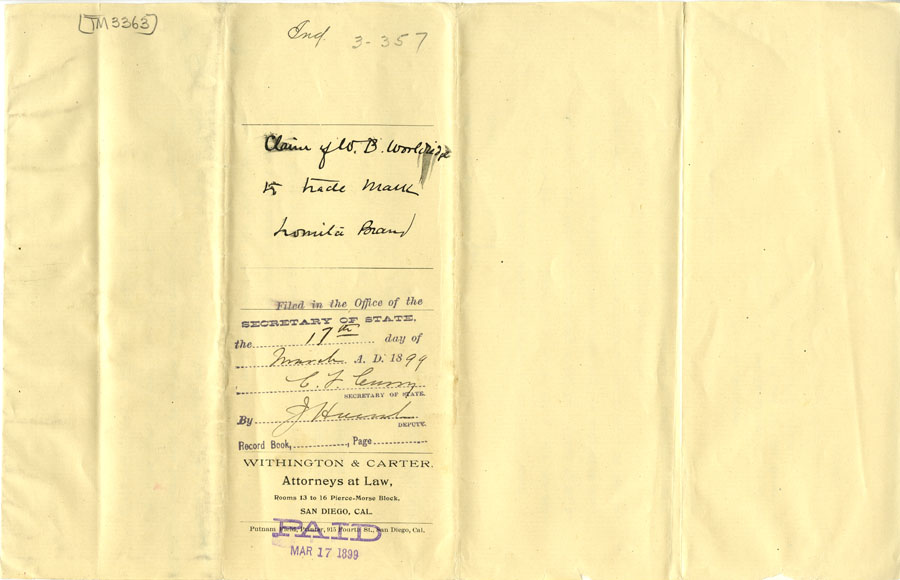 TM3363
Ind. 3-357
Claim of W. B. Wooldridge
to trade mark
Lomita Brand
Filed in the Office of the
SECRETARY OF STATE,
the 17th day of
March A. D. 1899
C. F. Curry
SECRETARY OF STATE.
By J Hoesch
DEPUTY.
Record Book, , Page
WITHINGTON & CARTER,
Attorneys at Law,
Rooms 13 to 16 Pierce-Morse Block,
SAN DIEGO, CAL.
Putnam Field, Printer, 915 Fourth St., San Diego, Cal.
PAID
MAR 17 1899